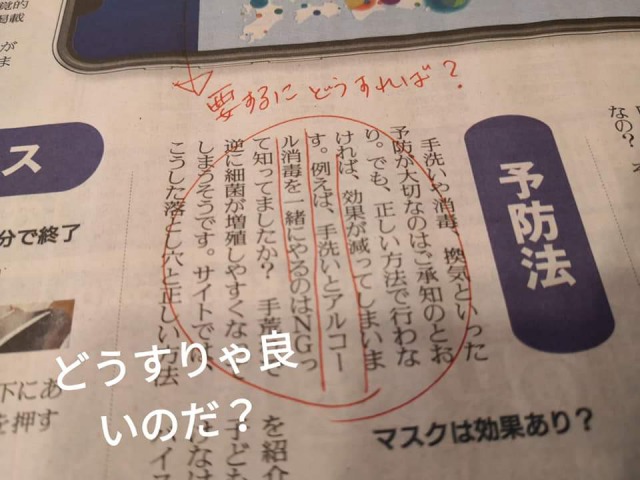 覚的
掲載
が
ま
要するに どうすれば?
予防法
手洗いや消毒、換気といった
予防が大切なのはご承知のとお
り。でも、正しい方法で行わな
ければ、効果が減ってしまいま
す。例えば、手洗いとアルコー
ル消毒を一緒にやるのはNGっ
て知ってましたか? 手荒れで
逆に細菌が増殖しやすくなって
しまうそうです。サイトでは、
こうした落とし穴と正しい方法
を紹介
子ども
なの?
ス
分で終了
下にあ
を押す
マスクは効果あり?
どうすりゃ良
いのだ?